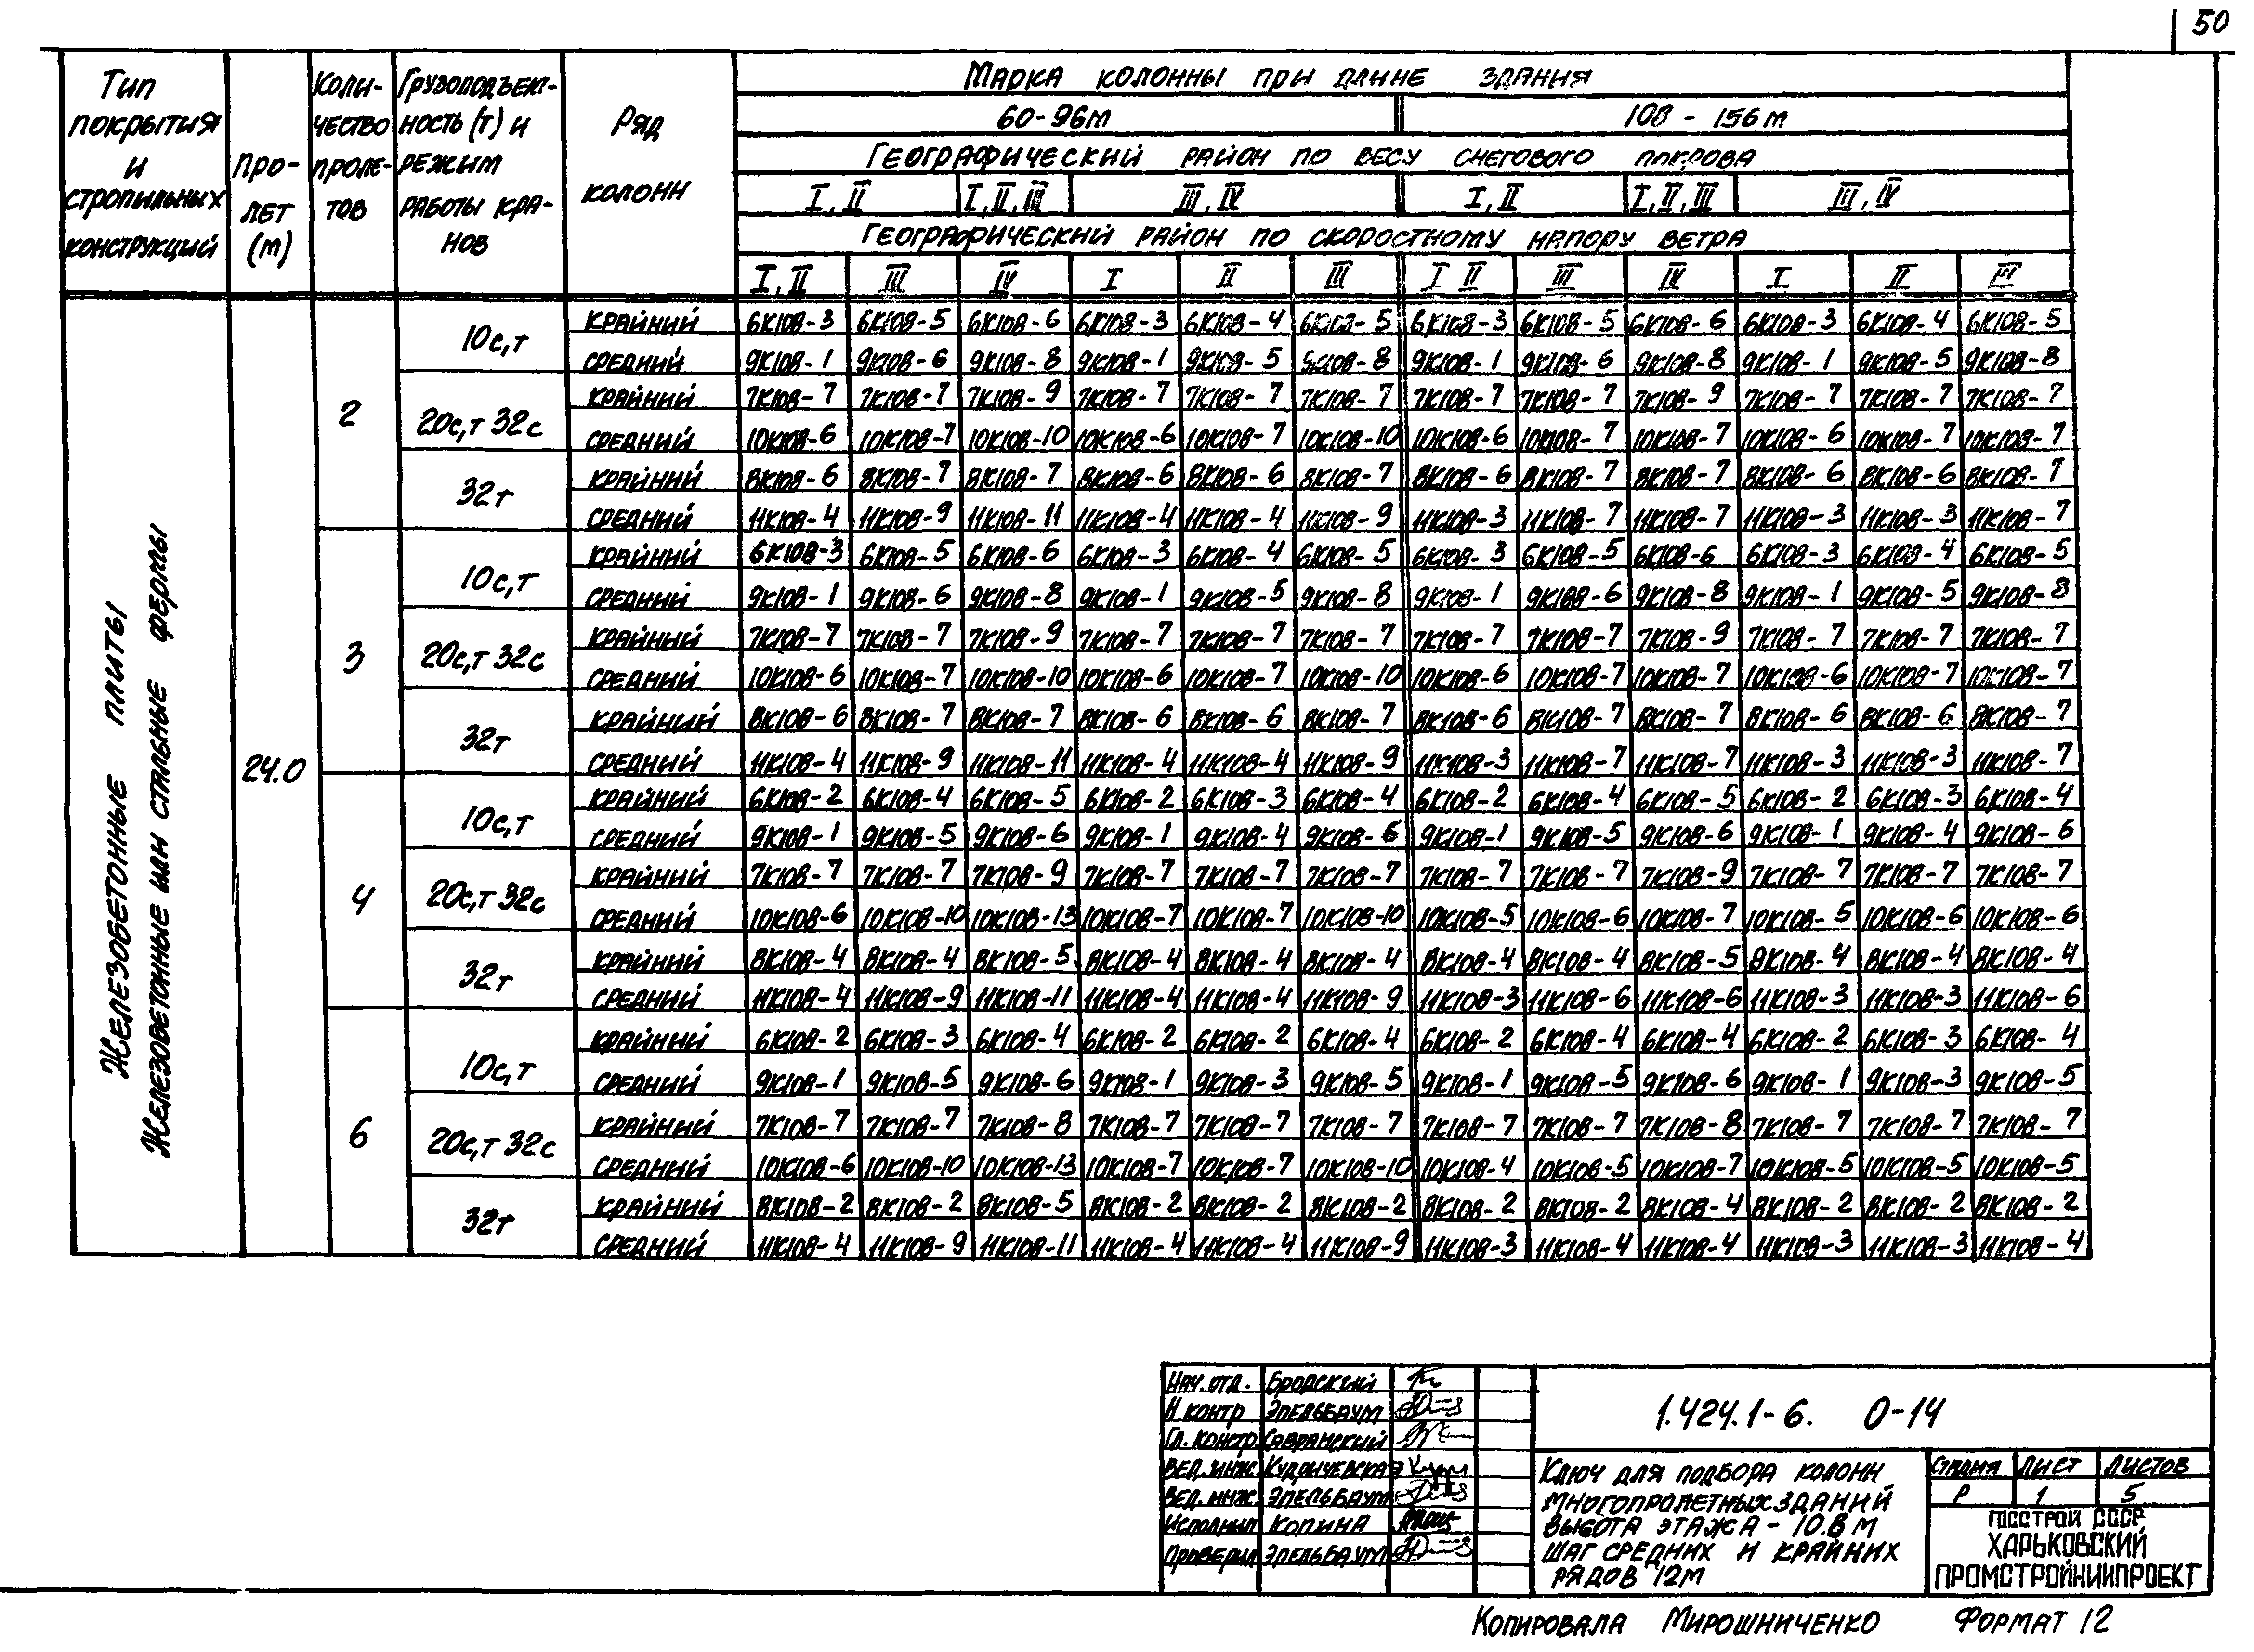 50
Тип покрытия и стропильных конструкций
Про-лет (м)
Коли-чество проле-тов
Грузоподъем-ность (т) и режим работы кра-нов
Ряд колонн
Марка колонны при длине здания
60-96м 108 - 156м
Географический район по весу снегового покрова
I, II I, II, III III, IV I, II I, II, III III, IV
Географический район по скоростному напору ветра
I, II III IV I II III I II III IV I II III
Железобетонные плиты
Железобетонные или стальные фермы
24.0
2
10с,т
крайний 6К108-3 6К108-5 6К108-6 6К108-3 6К108-4 6К108-5 6К108-3 6К108-5 6К108-6 6К108-3 6К108-4 6К108-5
средний 9К108-1 9К108-6 9К108-8 9К108-1 9К108-5 9К108-8 9К108-1 9К108-6 9К108-8 9К108-1 9К108-5 9К108-8
20с,т 32с
крайний 7К108-7 7К108-7 7К108-9 7К108-7 7К108-7 7К108-7 7К108-7 7К108-7 7К108-9 7К108-7 7К108-7 7К108-7
средний 10К108-6 10К108-7 10К108-10 10К108-6 10К108-7 10К108-10 10К108-6 10К108-7 10К108-7 10К108-6 10К108-7 10К108-7
32т
крайний 8К108-6 8К108-7 8К108-7 8К108-6 8К108-6 8К108-7 8К108-6 8К108-7 8К108-7 8К108-6 8К108-6 8К108-7
средний 11К108-4 11К108-9 11К108-11 11К108-4 11К108-4 11К108-9 11К108-3 11К108-7 11К108-7 11К108-3 11К108-3 11К108-7
3
10с,т
крайний 6К108-3 6К108-5 6К108-6 6К108-3 6К108-4 6К108-5 6К108-3 6К108-5 6К108-6 6К108-3 6К108-4 6К108-5
средний 9К108-1 9К108-6 9К108-8 9К108-1 9К108-5 9К108-8 9К108-1 9К108-6 9К108-8 9К108-1 9К108-5 9К108-8
20с,т 32с
крайний 7К108-7 7К108-7 7К108-9 7К108-7 7К108-7 7К108-7 7К108-7 7К108-7 7К108-9 7К108-7 7К108-7 7К108-7
средний 10К108-6 10К108-7 10К108-10 10К108-6 10К108-7 10К108-10 10К108-6 10К108-7 10К108-7 10К108-6 10К108-7 10К108-7
32т
крайний 8К108-6 8К108-7 8К108-7 8К108-6 8К108-6 8К108-7 8К108-6 8К108-7 8К108-7 8К108-6 8К108-6 8К108-7
средний 11К108-4 11К108-9 11К108-11 11К108-4 11К108-4 11К108-9 11К108-3 11К108-7 11К108-7 11К108-3 11К108-3 11К108-7
4
10с,т
крайний 6К108-2 6К108-4 6К108-5 6К108-2 6К108-3 6К108-4 6К108-2 6К108-4 6К108-5 6К108-2 6К108-3 6К108-4
средний 9К108-1 9К108-5 9К108-6 9К108-1 9К108-4 9К108-6 9К108-1 9К108-5 9К108-6 9К108-1 9К108-4 9К108-6
20с,т 32с
крайний 7К108-7 7К108-7 7К108-9 7К108-7 7К108-7 7К108-7 7К108-7 7К108-7 7К108-9 7К108-7 7К108-7 7К108-7
средний 10К108-6 10К108-10 10К108-13 10К108-7 10К108-7 10К108-10 10К108-5 10К108-6 10К108-7 10К108-5 10К108-6 10К108-6
32т
крайний 8К108-4 8К108-4 8К108-5 8К108-4 8К108-4 8К108-4 8К108-4 8К108-4 8К108-5 8К108-4 8К108-4 8К108-4
средний 11К108-4 11К108-9 11К108-11 11К108-4 11К108-4 11К108-9 11К108-3 11К108-6 11К108-6 11К108-3 11К108-3 11К108-6
6
10с,т
крайний 6К108-2 6К108-3 6К108-4 6К108-2 6К108-2 6К108-4 6К108-2 6К108-4 6К108-4 6К108-2 6К108-3 6К108-4
средний 9К108-1 9К108-5 9К108-6 9К108-1 9К108-3 9К108-5 9К108-1 9К108-5 9К108-6 9К108-1 9К108-3 9К108-5
20с,т 32с
крайний 7К108-7 7К108-7 7К108-8 7К108-7 7К108-7 7К108-7 7К108-7 7К108-7 7К108-8 7К108-7 7К108-7 7К108-7
средний 10К108-6 10К108-10 10К108-13 10К108-7 10К108-7 10К108-10 10К108-4 10К108-5 10К108-7 10К108-5 10К108-5 10К108-5
32т
крайний 8К108-2 8К108-2 8К108-5 8К108-2 8К108-2 8К108-2 8К108-2 8К108-2 8К108-4 8К108-2 8К108-2 8К108-2
средний 11К108-4 11К108-9 11К108-11 11К108-4 11К108-4 11К108-9 11К108-3 11К108-4 11К108-4 11К108-3 11К108-3 11К108-4
Нач. отд. Бродский
Н контр Эпельбаум
Гл. констр. Савранский
Вед. инж. Кудричевская
Вед. инж. Эпельбаум
Исполнил Копина
Проверил Эпельбаум
1.424.1-6. 0-14
Ключ для подбора колонн
многопролетных зданий
высота этажа - 10.8 м
шаг средних и крайних
рядов 12м
Стадия Лист Листов
Р 1 5
ГОССТРОЙ СССР
ХАРЬКОВСКИЙ
ПРОМСТРОЙНИИПРОЕКТ
Копировала Мирошниченко Формат 12